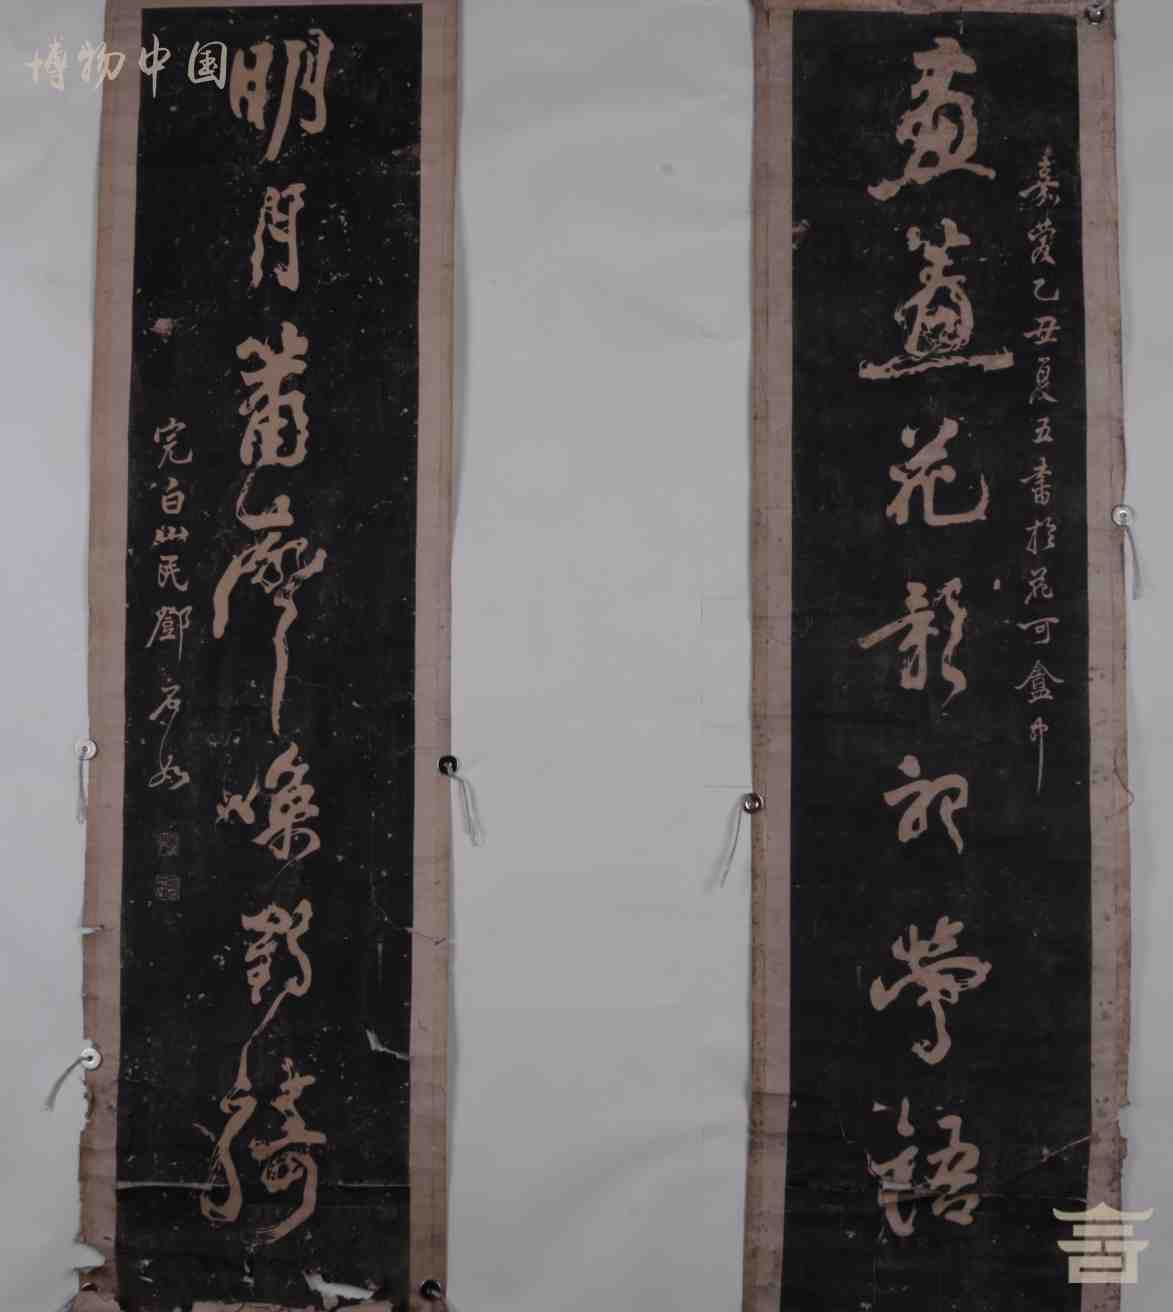 畫花影鶯語
嘉慶乙丑夏五書於花可盦中
明月簫聲喚鶴騎
完白山民鄧石如
博物中国